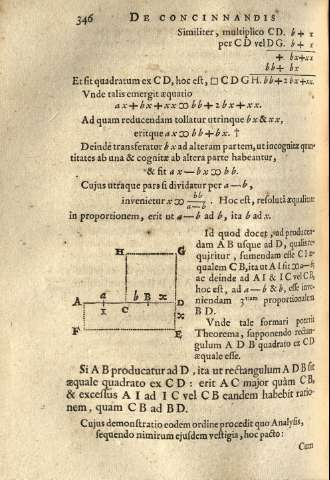 346 DE CONCINNANDIS
Similiter, multiplico CD. b + x
per CD vel DG. b + x
+ bx+xx
bb+ bx
Et fit quadratum ex CD, hoc est, □ CDGH. bb+2bx+xx.
Vnde talis emergit æquatio
ax+bx+xx ∞ bb+2bx+xx.
Ad quam reducendam tollatur utrinque bx & xx,
eritque ax ∞ bb+bx. †
Deinde transferatur bx ad alteram partem, ut incognitæ quan-
titates ab una & cognitæ ab altera parte habeantur,
& fit ax—bx ∞ bb.
Cujus utraque pars si dividatur per a—b,
invenietur x ∞ bb/a—b. Hoc est, resolutâ æqualitate
in proportionem, erit ut a—b ad b, ita b ad x.
H G
a b x
A I C B D
x
F E
Id quod docet, ad producen-
dam AB usque ad D, qualiter
quiritur, sumendam esse CI æ-
qualem CB, ita ut AI sit ∞ a—b;
ac deinde ad AI & IC vel CB,
hoc est, ad a—b & b, esse inve-
niendam 3tiam proportionalem
BD.
Vnde tale formari poterit
Theorema, supponendo rectan-
gulum ADB quadrato ex CD
æquale esse.
Si AB producatur ad D, ita ut rectangulum ADB sit
æquale quadrato ex CD: erit AC major quàm CB,
& excessus AI ad IC vel CB eandem habebit ratio-
nem, quam CB ad BD.
Cujus demonstratio eodem ordine procedit quo Analysis,
sequendo nimirum ejusdem vestigia, hoc pacto:
Cum